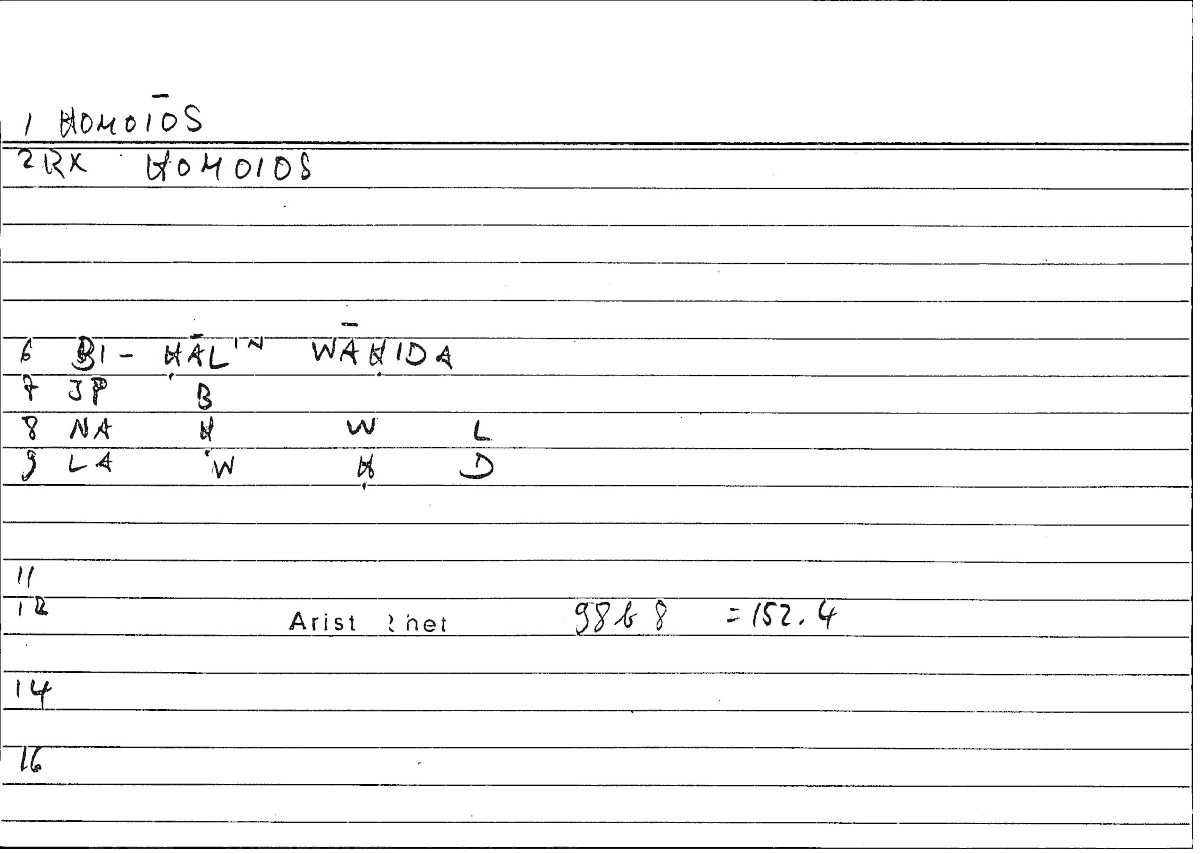 1 HOMOIŌS
2 RX HOMOIOS
6 BI- ḤĀL IN WĀḤIDA
7 JP B
8 NA Ḥ W L
9 LA W Ḥ D
11
12 Arist Rhet 98b8 = 152.4
14
16